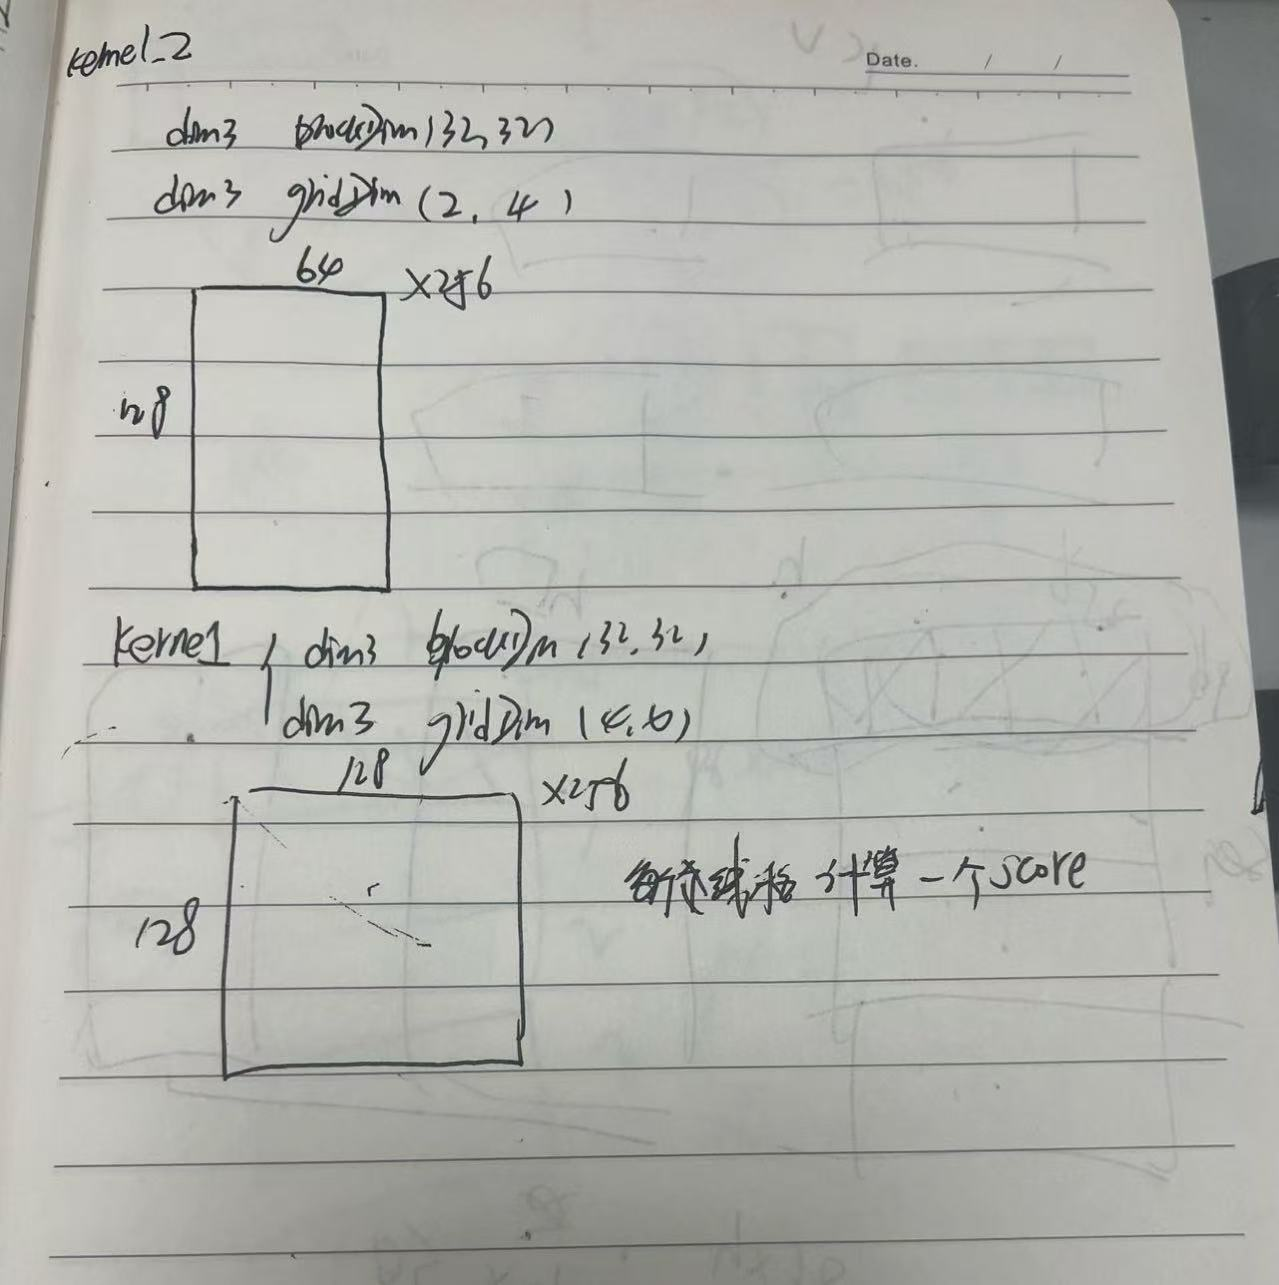 kernel_2
Date. / /
dim3 blockDim(32,32)
dim3 gridDim(2,4)
64 ×256
128
kernel
dim3 blockDim(32,32)
dim3 gridDim(4,
128 ×256
128
每个线程计算一个score